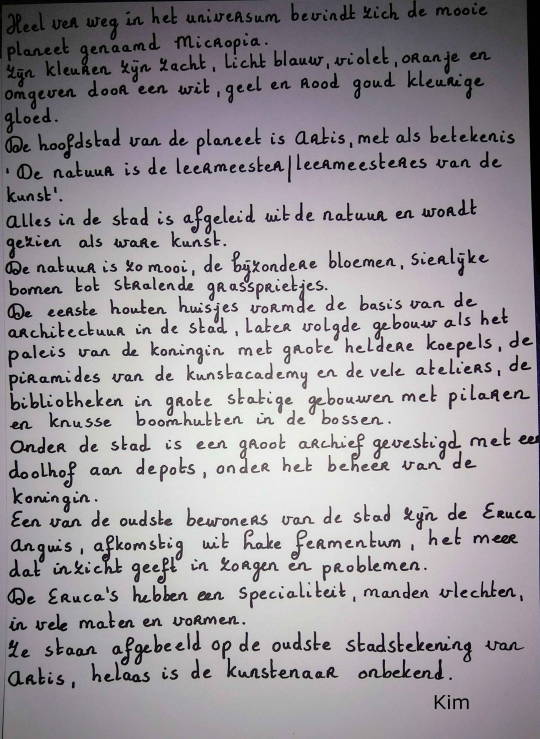 Heel ver weg in het universum bevindt zich de mooie
planeet genaamd Micropia.
Zijn kleuren zijn zacht, licht blauw, violet, oranje en
omgeven door een wit, geel en rood goud kleurige
gloed.
De hoofdstad van de planeet is Artis, met als betekenis
'De natuur is de leermeester/leermeesteres van de
kunst'.
Alles in de stad is afgeleid uit de natuur en wordt
gezien als ware kunst.
De natuur is zo mooi, de bijzondere bloemen, sierlijke
bomen tot stralende grassprietjes.
De eerste houten huisjes vormde de basis van de
architectuur in de stad, later volgde gebouw als het
paleis van de koningin met grote heldere koepels, de
piramides van de kunstacademy en de vele ateliers, de
bibliotheken in grote statige gebouwen met pilaren
en knusse boomhutten in de bossen.
Onder de stad is een groot archief gevestigd met een
doolhof aan depots, onder het beheer van de
koningin.
Een van de oudste bewoners van de stad zijn de Eruca
Anguis, afkomstig uit hake fermentum, het meer
dat inzicht geeft in zorgen en problemen.
De Eruca's hebben een specialiteit, manden vlechten,
in vele maten en vormen.
Ze staan afgebeeld op de oudste stadstekening van
Artis, helaas is de kunstenaar onbekend.
Kim